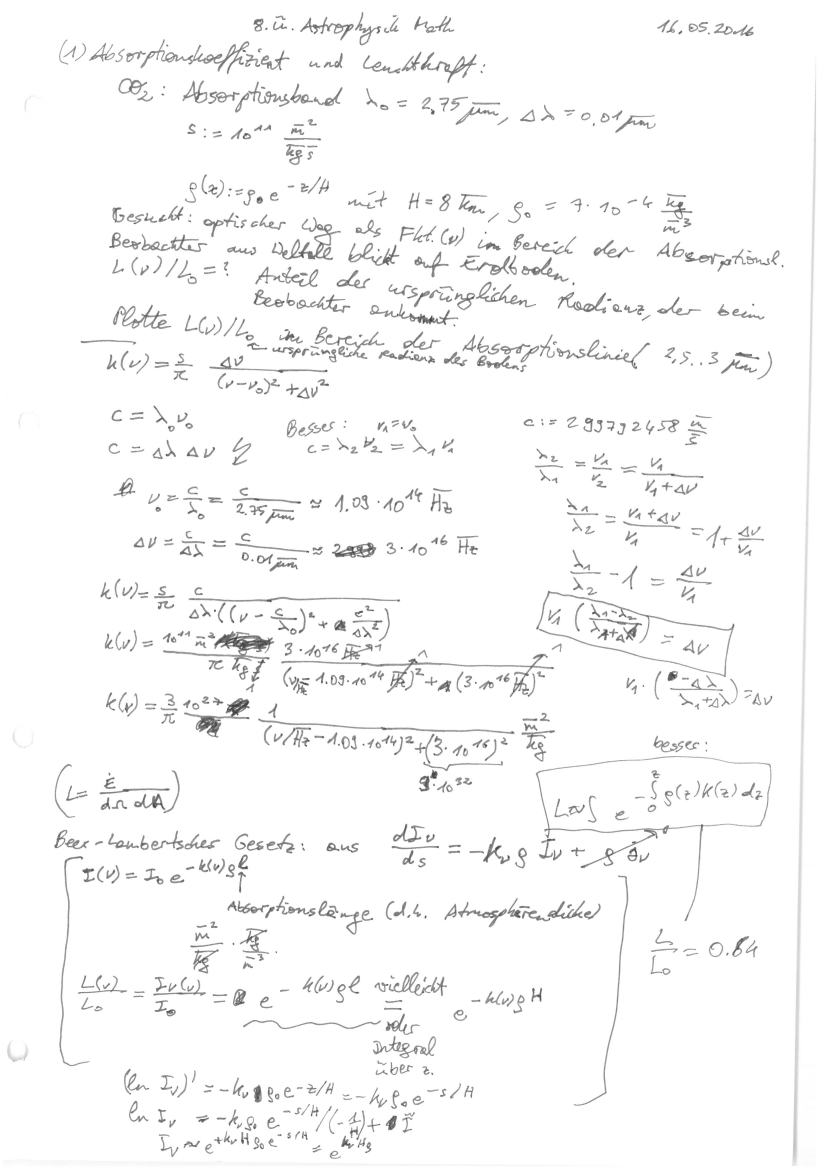 8. Ü. Astrophysik Math 16.05.2016
(1) Absorptionskoeffizient und Leuchtkraft:
CO₂: Absorptionsband λ₀ = 2,75 μm, Δλ = 0,01 μm
s := 10¹¹ m²/(kg s)
ρ(z) := ρ₀ e^(-z/H) mit H = 8 km, ρ₀ = 7·10⁻⁴ kg/m³
Gesucht: optischer Weg als Fkt.(ν) im Bereich der Absorptionsl.
Beobachter aus Weltall blickt auf Erdboden.
L(ν)/L₀ = ? Anteil der ursprünglichen Radianz, der beim
Beobachter ankommt.
Plotte L(ν)/L₀ im Bereich der Absorptionslinie( 2,5..3 μm)
ursprüngliche Radianz des Bodens
k(ν) = s/π Δν/((ν-ν₀)² + Δν²)
c = λ₀ν₀
c = Δλ Δν ↯
Besser: ν₁=ν₀
c = λ₂ν₂ = λ₁ν₁
c := 299792458 m/s
λ₂/λ₁ = ν₁/ν₂ = ν₁/(ν₁+Δν)
ν₀ = c/λ₀ = c/(2.75 μm) ≈ 1.09 · 10¹⁴ Hz
λ₁/λ₂ = (ν₁+Δν)/ν₁ = 1 + Δν/ν₁
Δν = c/Δλ = c/(0.01 μm) ≈ 3·10¹⁶ Hz
λ₁/λ₂ - 1 = Δν/ν₁
k(ν) = s/π c/(Δλ·((ν - c/λ₀)² + c²/Δλ²))
ν₁ ((λ₁-λ₂)/(λ₁+Δλ)) = Δν
k(ν) = 10¹¹ m²/(π kg s) 3·10¹⁶ Hz/((ν - 1.09·10¹⁴ Hz)² + (3·10¹⁶ Hz)²)
ν₁ · (-Δλ/(λ₁+Δλ)) = Δν
k(ν) = 3/π 10²⁷ 1/((ν/Hz - 1.09·10¹⁴)² + (3·10¹⁶)²) m²/kg
9·10³²
besser:
(L = Ė/(dΩ dA))
L ~ ∫ e^(-∫₀ᶻ ρ(z)k(z) dz)
Beer-Lambertsches Gesetz: aus dIν/ds = -kνρ Iν + ρ jν → 0
I(ν) = I₀ e^(-k(ν)ρl)
Absorptionslänge (d.h. Atmosphärendicke)
m²/kg · kg/m³ ·
L/L₀ = 0.64
L(ν)/L₀ = Iν(ν)/I₀ = e^(-k(ν)ρl) vielleicht = e^(-k(ν)ρH)
oder
Integral
über z.
(ln Iν)' = -kν ρ₀ e^(-z/H) = -kν ρ₀ e^(-s/H)
ln Iν = -kν ρ₀ e^(-s/H)/(-1/H) + Ĩ
Iν ~ e^(+kν H ρ₀ e^(-s/H)) = e^(kν H ρ)